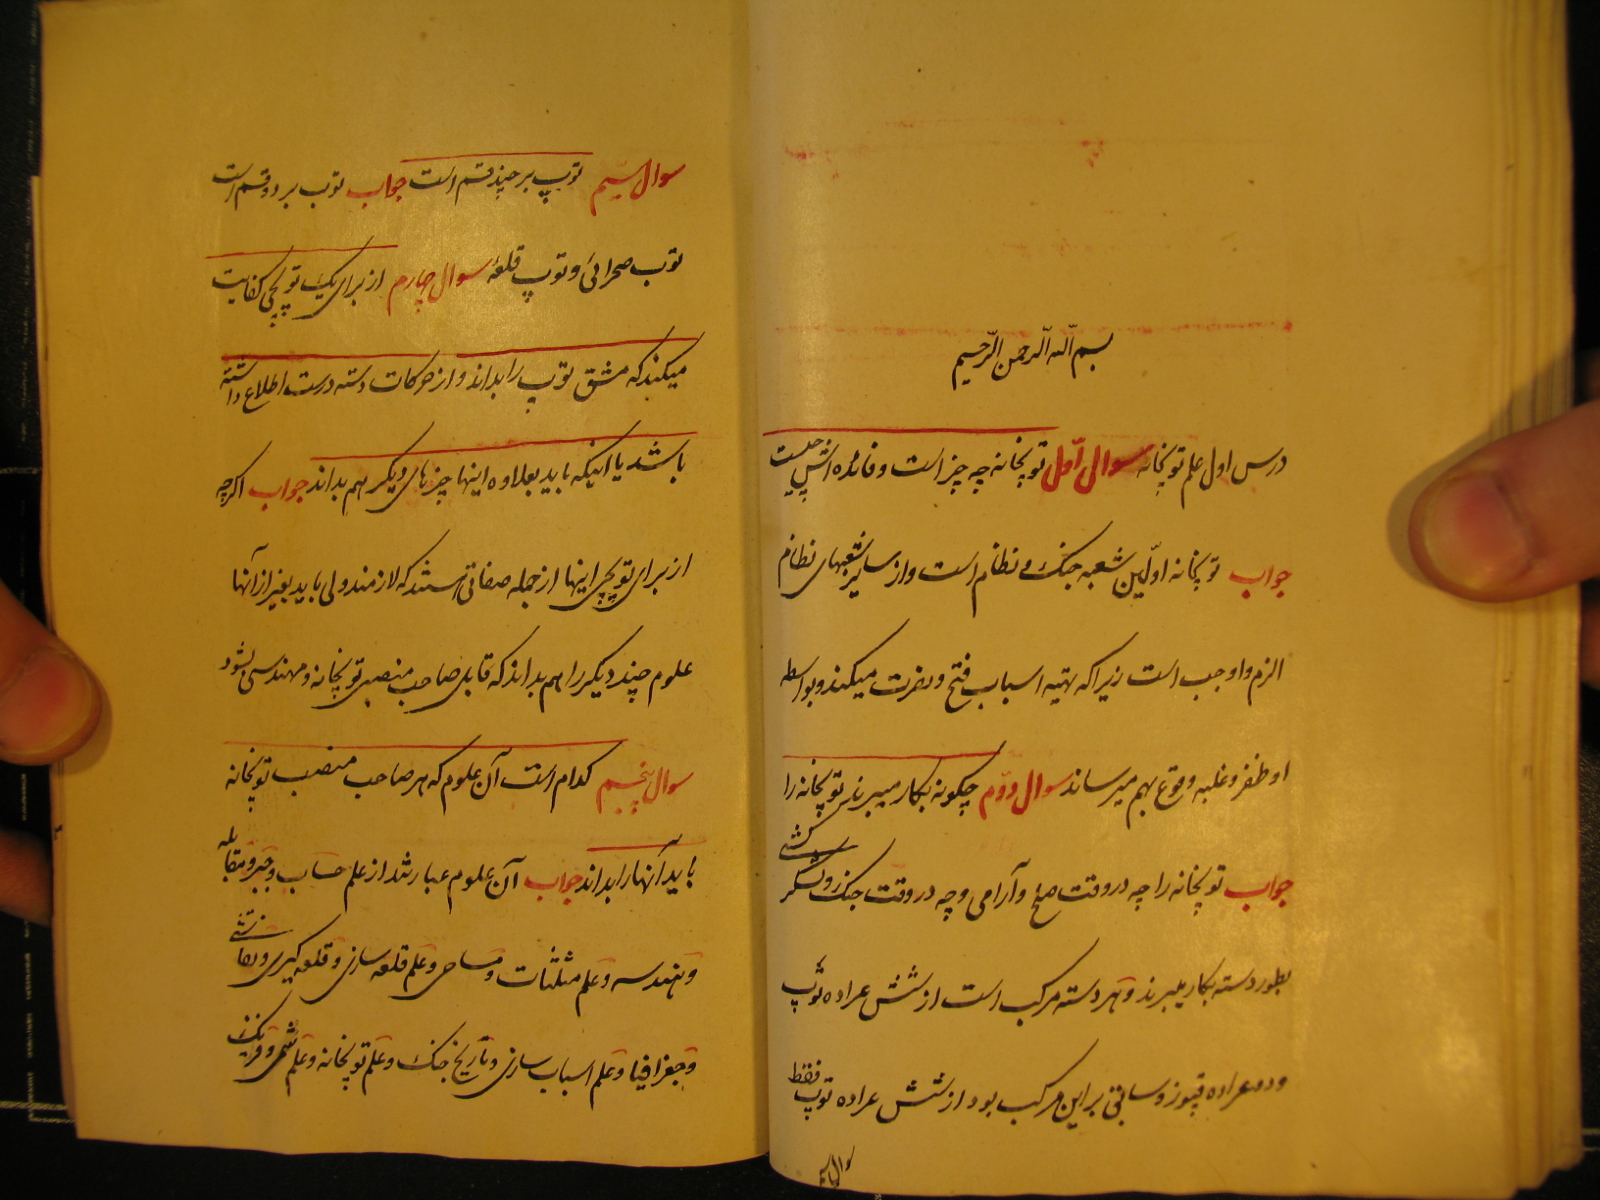 بسم الله الرحمن الرحیم
درس اول علم توپخانه سوال اول توپخانه چه چیز است و فائده اش چیست
جواب توپخانه اولین شعبه جنک و نظام است و از سایر شعبهای نظام
الزم و اوجب است زیرا که تهیه اسباب فتح و نصرت میکند و بواسطه
او ظفر و غلبه وقوع بهم میرساند سوال دوم چکونه بکار میبرند توپخانه را
جواب توپخانه را چه در وقت صلح و آرامی و چه در وقت جنک و لشکر کشی
بطور دسته بکار میبرند و هر دسته مرکب است از شش عراده توپ
و دو عراده قپوز و سابق بر این مرکب بود از شش عراده توپ فقط
سوال سیم
سوال سیم توپ بر چند قسم است جواب توپ بر دو قسم است
توپ صحرائی و توپ قلعهٔ سوال چهارم از برای یک توپچی کفایت
میکند که مشق توپ را بداند و از حرکات دسته درست اطلاع داشته
باشد یا اینکه باید بعلاوه اینها چیزهای دیکر هم بداند جواب اکرچه
از برای توپچی اینها از جمله صفاتی هستند که لازمند ولی باید بغیر از آنها
علوم چند دیکر را هم بداند که قابل صاحب منصبی توپخانه و مهندسی بشود
سوال پنجم کدام است آن علوم که هر صاحب منصب توپخانه
باید آنها را بداند جواب آن علوم عبارتند از علم حساب و جبر و مقابله
و هندسه و علم مثلثات و مساحی و علم قلعه سازی و قلعه کیری و نقاشی
و جغرافیا و علم اسباب سازی و تاریخ جنک و علم توپخانه و علم شیمی و فیزیک